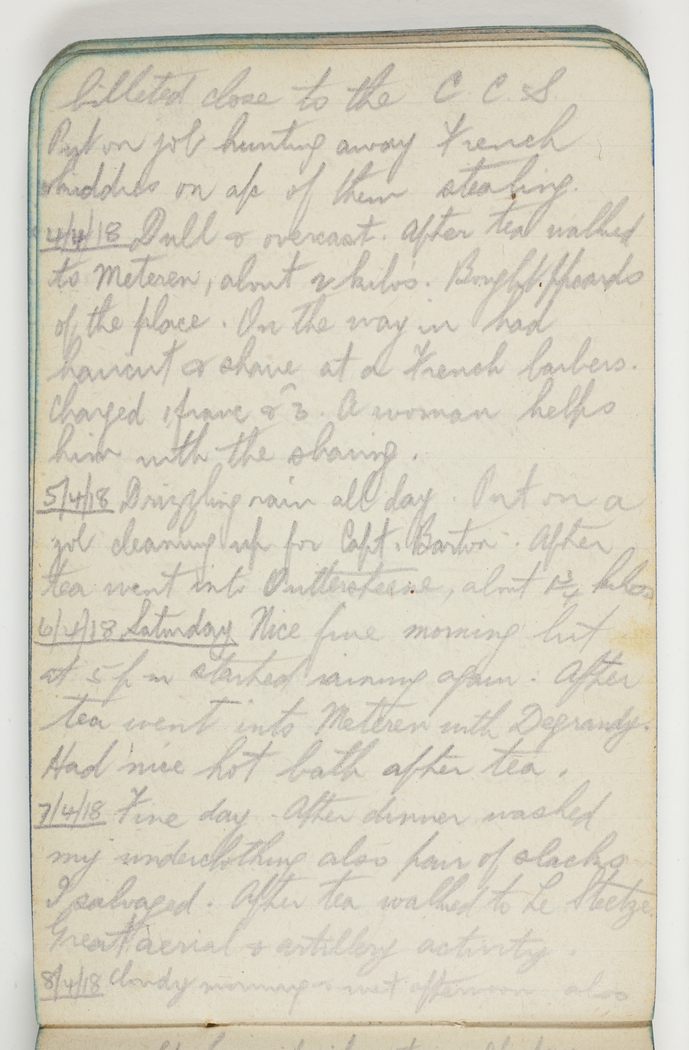 billeted close to the C. C. S
Put on job hunting away French
kiddies on a/c of them stealing.
4/4/18 Dull & overcast. After tea walked
to Meteren, about 2 kilos. Bought ppcards
of the place. On the way in had
haircut & shave at a French barbers.
Charged 1 franc & 3. A woman helps
him with the shaving.
5/4/18 Drizzling rain all day. Put on a
job cleaning up for Capt. Barton. After
tea went into Outtersteene, about 1¾ kilos
6/4/18 Saturday Nice fine morning but
at 5 p m started raining again. After
tea went into Meteren with Degrandy.
Had nice hot bath after tea.
7/4/18 Fine day. After dinner washed
my underclothing also pair of slacks
I salvaged. After tea walked to Le Steetze.
Great aerial & artillery activity.
8/4/18 Cloudy morning & wet afternoon also